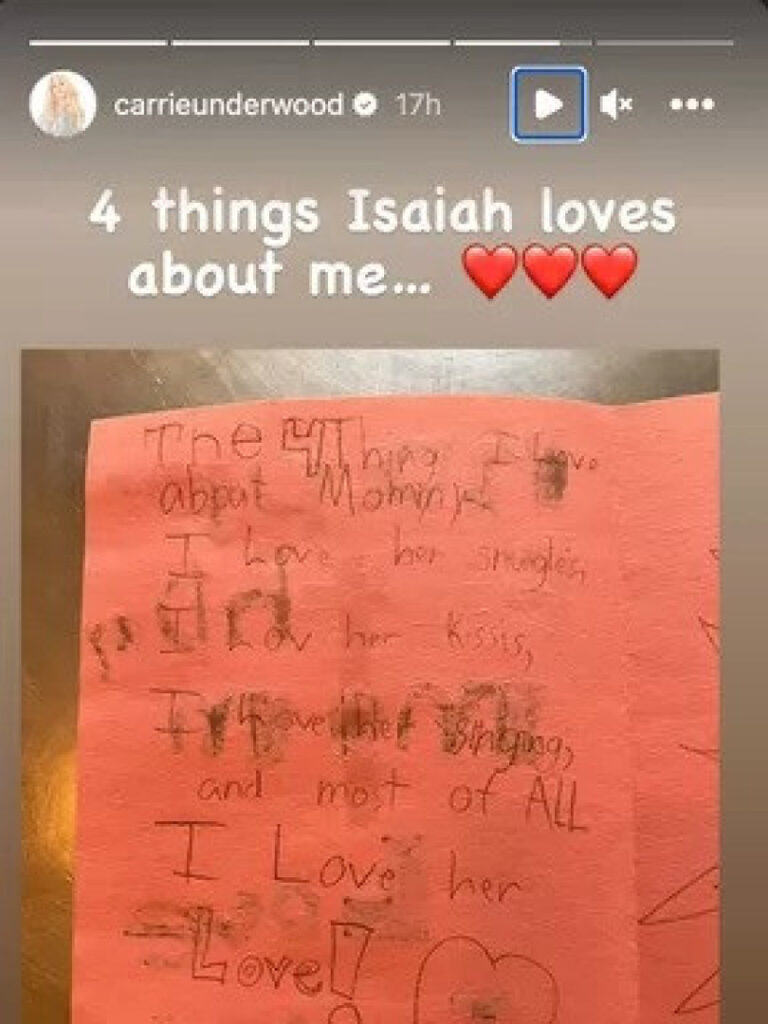 carrieunderwood 17h
4 things Isaiah loves
about me... ❤️❤️❤️
The 4 Thing I Love
about Mommy
I Love her snuggles,
I Lov her kissis,
I Love her singing,
and most of ALL
I Love her
Love!